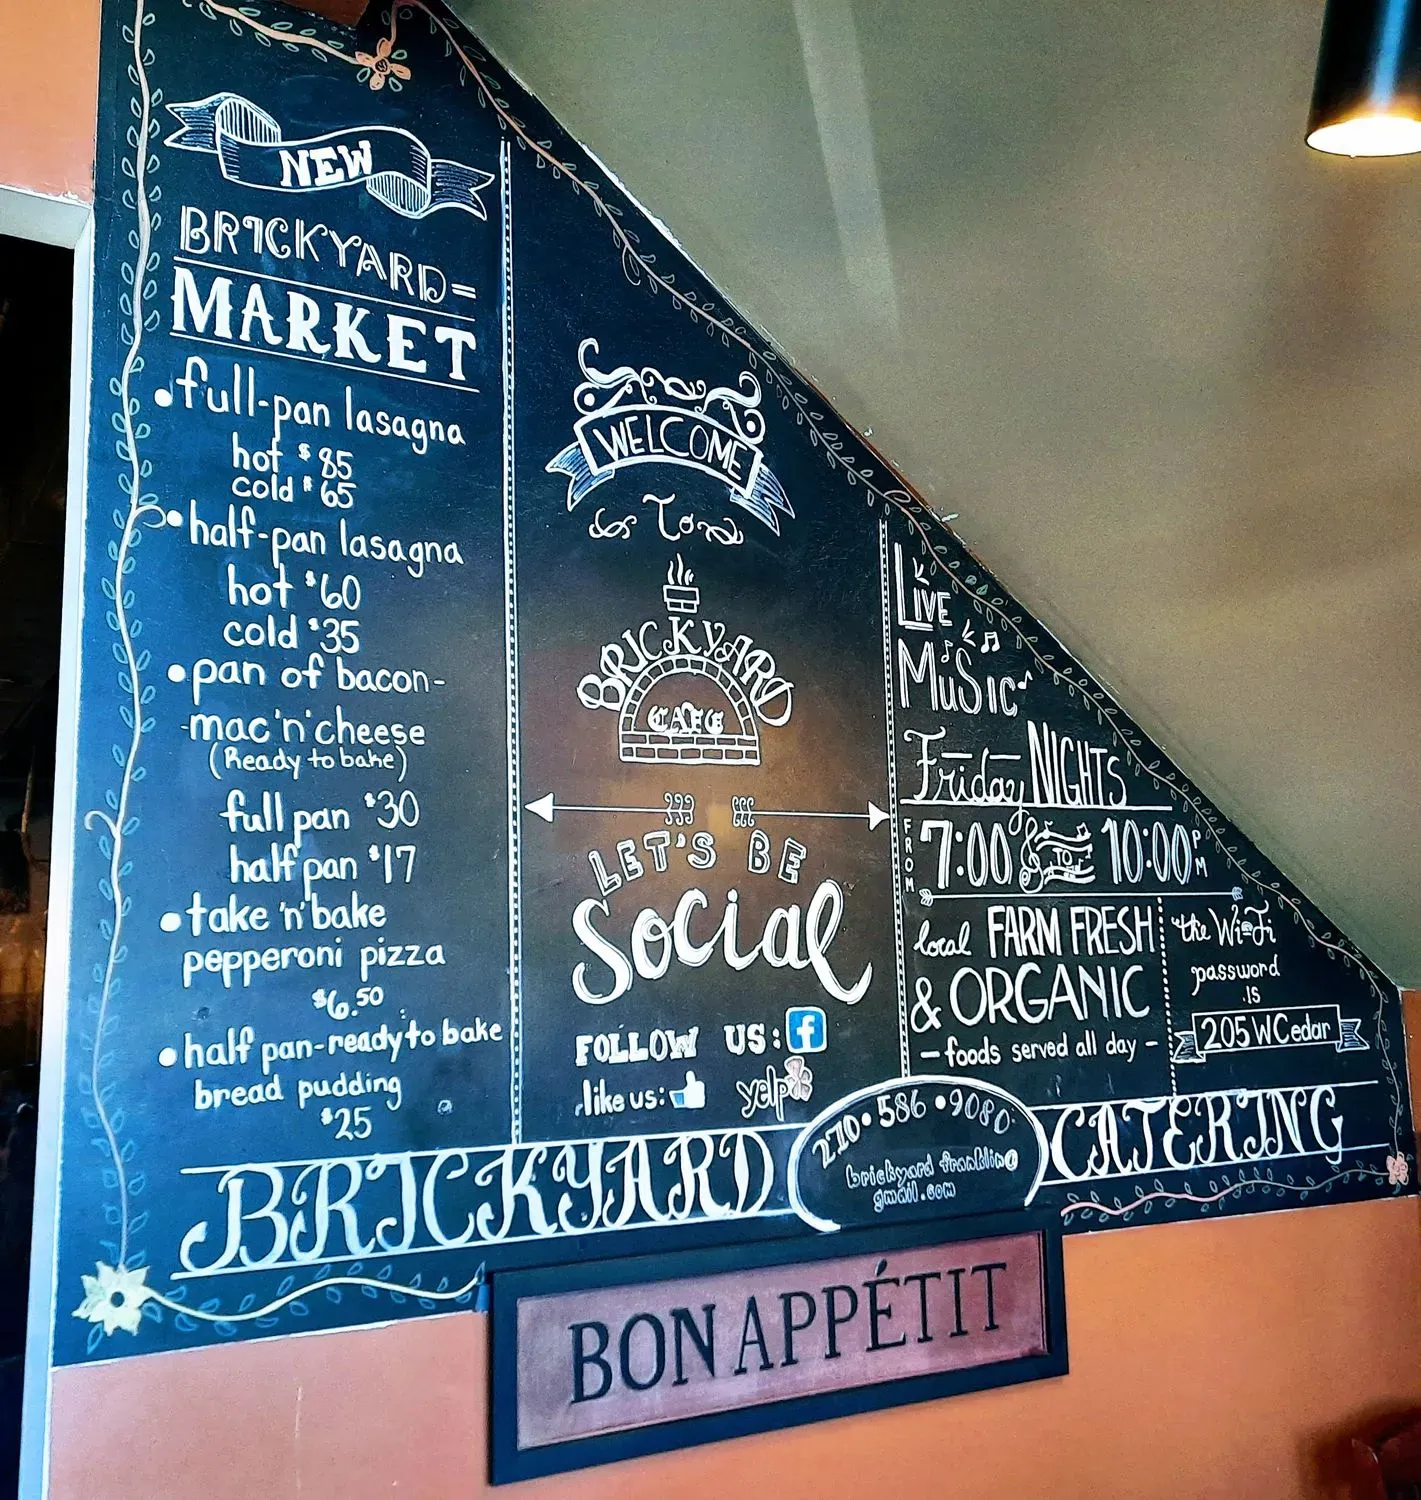 NEW
BRICKYARD=
MARKET
• full-pan lasagna
hot $85
cold $65
• half-pan lasagna
hot $60
cold $35
• pan of bacon-
-mac'n'cheese
(Ready to bake)
full pan $30
half pan $17
• take 'n' bake
pepperoni pizza
$6.50
• half pan-ready to bake
bread pudding
$25
WELCOME
To
BRICKYARD
CAFE
LET'S BE
Social
FOLLOW US: f
like us:
yelp
LIVE
MuSic
Friday NIGHTS
FROM 7:00 TO 10:00 PM
local FARM FRESH
& ORGANIC
- foods served all day -
the Wi-Fi
password
is
205WCedar
BRICKYARD
270•586•9080
brickyard franklin@
gmail.com
CATERING
BON APPÉTIT